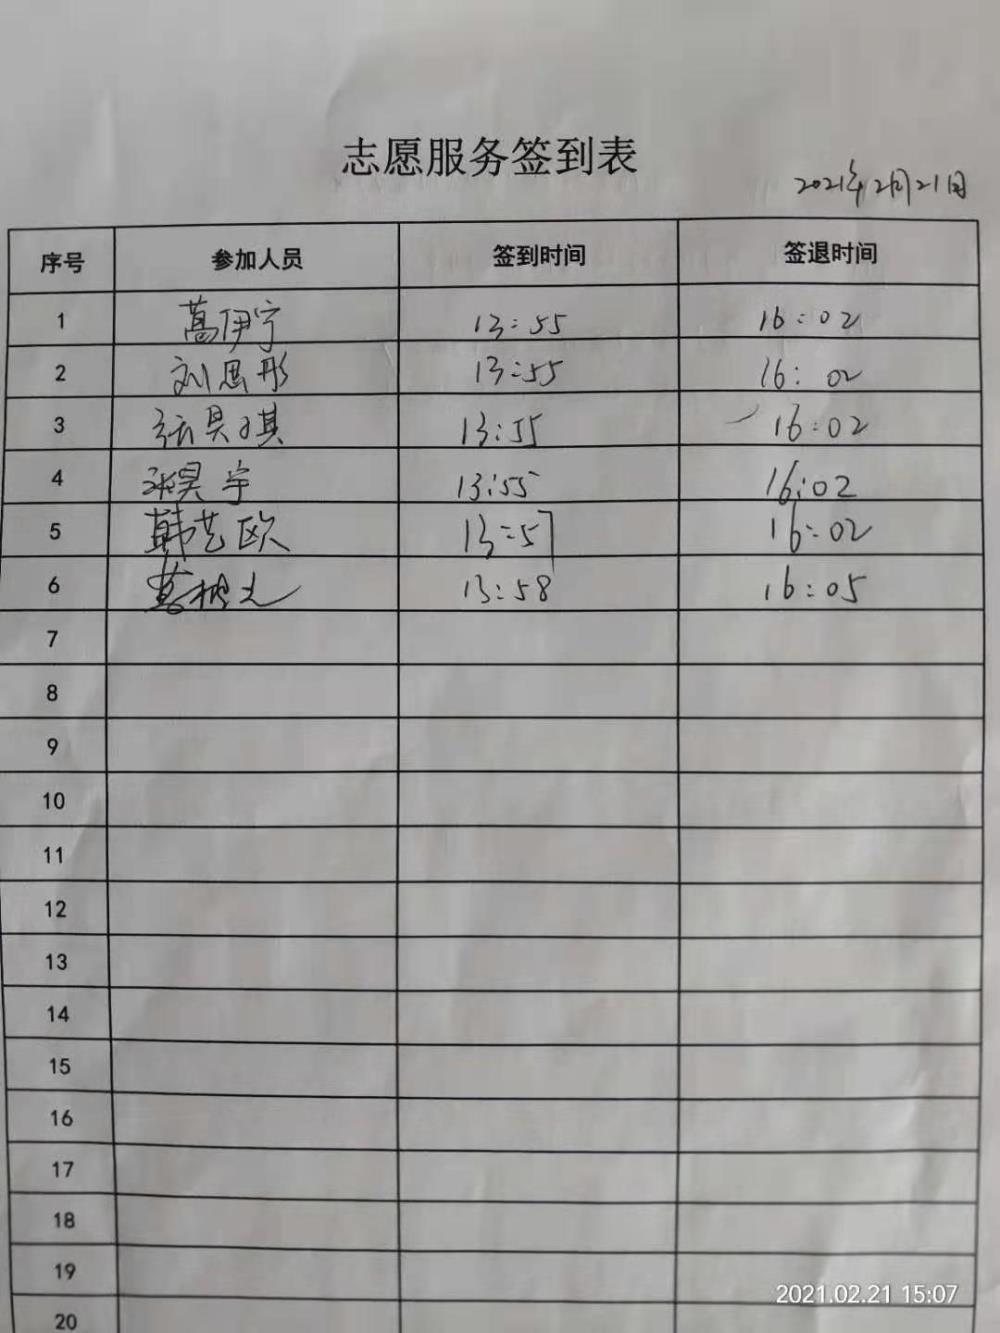 志愿服务签到表
2021年2月21日
序号 参加人员 签到时间 签退时间
1 葛伊宁 13:55 16:02
2 刘思彤 13:55 16:02
3 张昊琪 13:55 16:02
4 张昊宇 13:55 16:02
5 韩艺欧 13:57 16:02
6 13:58 16:05
7
8
9
10
11
12
13
14
15
16
17
18
19
20
2021.02.21 15:07